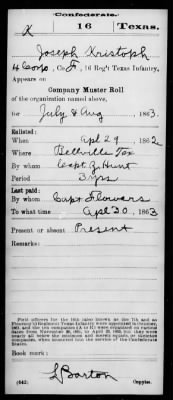 Confederate.
K 16 Texas.
Joseph Kristoph
4 Corp, Co. F, 16 Reg't Texas Infantry,
Appears on
Company Muster Roll
of the organization named above,
for July & Aug, 1863.
Enlisted:
When Apl 29, 1862
Where Bellville Tex
By whom Capt Z Hunt
Period 3 yrs
Last paid:
By whom Capt
To what time Apl 30, 1863
Present or absent Present
Remarks:
Book mark:
L Barton
(642) Copyist.